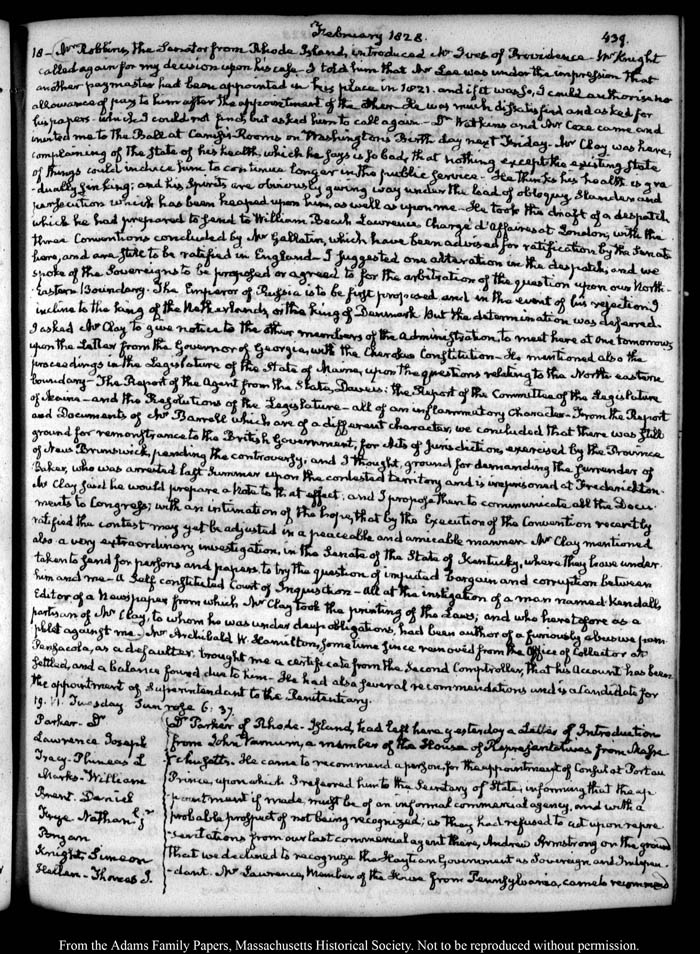 February 1828.
439.
18 – Mr Robbins, the Senator from Rhode Island, introduced Mr Ives of Providence – Mr Knight
called again for my decision upon his case – I told him that Mr Lee was under the impression that
another paymaster had been appointed in his place in 1821. and if it was so, I could authorise no
allowance of pay to him after the appointment of the other – He was much dissatisfied and asked for
his papers – which I could not find, but asked him to call again – Dr Watkins and Mr Coxe came and
invited me to the Ball at Carusi's Rooms on Washington's Birth day next Friday – Mr Clay was here;
complaining of the State of his health, which he says is so bad, that nothing except the existing State
of things could induce him to continue longer in the public service – He thinks his health is gra-
-dually sinking; and his Spirits are obviously giving way under the load of obloquy, Slander and
persecution which has been heaped upon him, as well as upon me – He took the draft of a despatch
which he had prepared to send to William Beach Lawrence Chargé d'Affaires at London, with the
three Conventions concluded by Mr Gallatin, which have been advised for ratification by the Senate
here, and are still to be ratified in England – I suggested one alteration in the despatch; and we
spoke of the Sovereigns to be proposed or agreed to for the arbitration of the question upon our North-
-Eastern Boundary. The Emperor of Russia is to be first proposed and in the event of his rejection I
incline to the king of the Netherlands, or the king of Denmark. But the determination was deferred.
I asked Mr Clay to give notice to the other members of the Administration, to meet here at one tomorrow,
upon the Letter from the Governor of Georgia, with the Cherokee Constitution – He mentioned also the
proceedings in the Legislature of the State of Maine, upon the questions relating to the North eastern
boundary – The Report of the Agent from the State, Daveis: the Report of the Committee of the Legislature
of Maine – and the Resolutions of the Legislature – all of an inflammatory Character – From the Report
and Documents of Mr Barrell which are of a different character, we concluded that there was still
ground for remonstrance to the British Government, for Acts of Jurisdiction, exercised by the Province
of New Brunswick, pending the controversy; and I thought, ground for demanding the surrender of
Baker, who was arrested last Summer upon the contested territory and is imprisoned at Frederickton –
Mr Clay said he would prepare a Note to that effect, and I propose then to communicate all the Docu-
ments to Congress; with an intimation of the hope, that by the Execution of the Convention recently
ratified the contest may yet be adjusted in a peaceable and amicable manner – Mr Clay mentioned
also a very extraordinary investigation, in the Senate of the State of Kentucky, where they have under-
taken to send for persons and papers, to try the question of imputed bargain and corruption between
him and me – A Self constituted Court of Inquisition – All at the instigation of a man named Kendall,
Editor of a Newspaper from which Mr Clay took the printing of the Laws; and who heretofore as a
partisan of Mr Clay, to whom he was under deep obligations, had been author of a furiously abusive pam-
phlet against me – Mr Archibald W. Hamilton, sometime since removed from the Office of Collector at
Pensacola, as a defaulter, brought me a certificate from the Second Comptroller, that his Account has been
settled, and a balance found due to him – He had also several recommendations and is a Candidate for
the appointment of Superintendant to the Penitentiary.
19. VI. Tuesday Sun rose 6: 37.
Parker – Dr
Lawrence Joseph
Tracy – Phineas L
Marks – William
Brent. Daniel
Frye. Nathanl. Jr
Knight, Simeon
Harlan – Thomas J.
Dr Parker of Rhode-Island, had left here yesterday a Letter of Introduction
from John Varnum, a member of the House of Representatives from Massa-
chusetts. He came to recommend a person for the appointment of Consul at Port au
Prince, upon which I referred him to the Secretary of State, informing that the ap-
pointment if made, must be of an informal commercial agency, and with a
probable prospect of not being recognized; as they had refused to act upon repre-
sentations from our last commercial agent there, Andrew Armstrong on the ground
that we declined to recognize the Haytian Government as Sovereign and Indepen-
-dent. Mr Lawrence, Member of the House from Pennsylvania, came to recommend
From the Adams Family Papers, Massachusetts Historical Society. Not to be reproduced without permission.